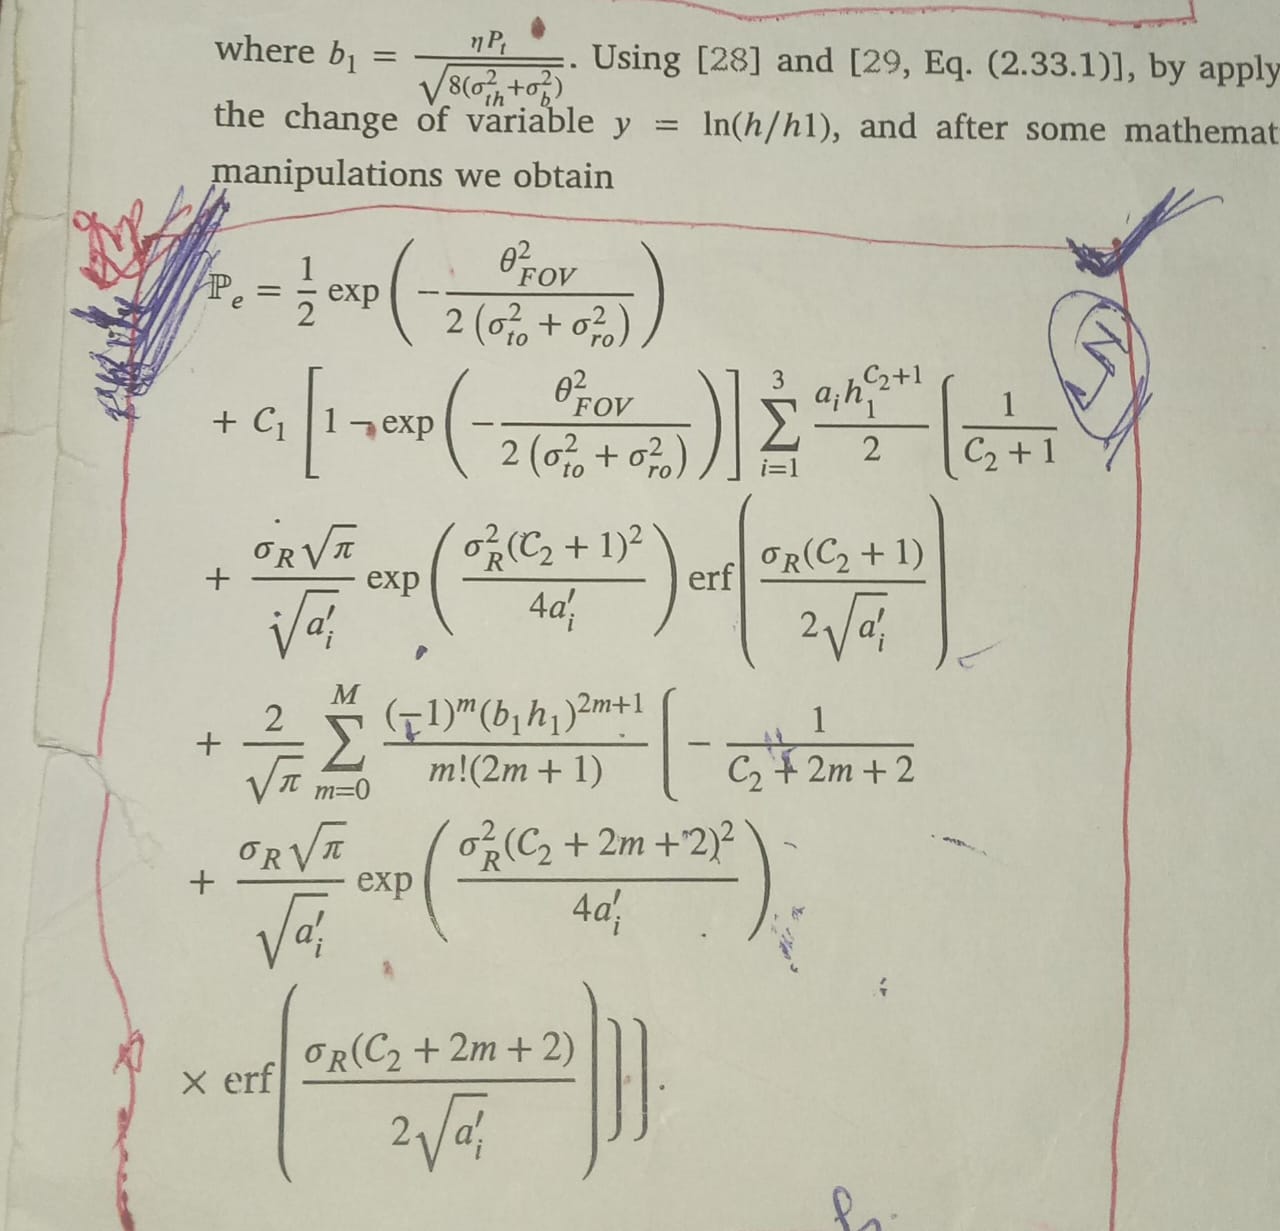 where b₁ = ηPₜ / √(8(σ²ₜₕ+σ²_b)). Using [28] and [29, Eq. (2.33.1)], by apply
the change of variable y = ln(h/h1), and after some mathemat
manipulations we obtain
ℙₑ = 1/2 exp(− θ²_FOV / 2(σ²_to + σ²_ro))
+ C₁ [1 − exp(− θ²_FOV / 2(σ²_to + σ²_ro))] ∑_{i=1}^{3} aᵢh₁^{C₂+1} / 2 [ 1 / C₂ + 1
+ σ_R√π / √a′ᵢ exp(σ²_R(C₂ + 1)² / 4a′ᵢ) erf(σ_R(C₂ + 1) / 2√a′ᵢ)
+ 2/√π ∑_{m=0}^{M} (−1)^m(b₁h₁)^{2m+1} / m!(2m + 1) [ − 1 / C₂ + 2m + 2
+ σ_R√π / √a′ᵢ exp(σ²_R(C₂ + 2m + 2)² / 4a′ᵢ)
× erf(σ_R(C₂ + 2m + 2) / 2√a′ᵢ)]].